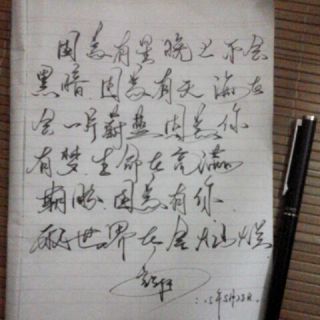 因为有星晚上不会
黑暗因为有天海才
会一片蔚蓝因为你
有梦生命在充满
期盼因为有你
我世界才会灿烂
15年5月28日